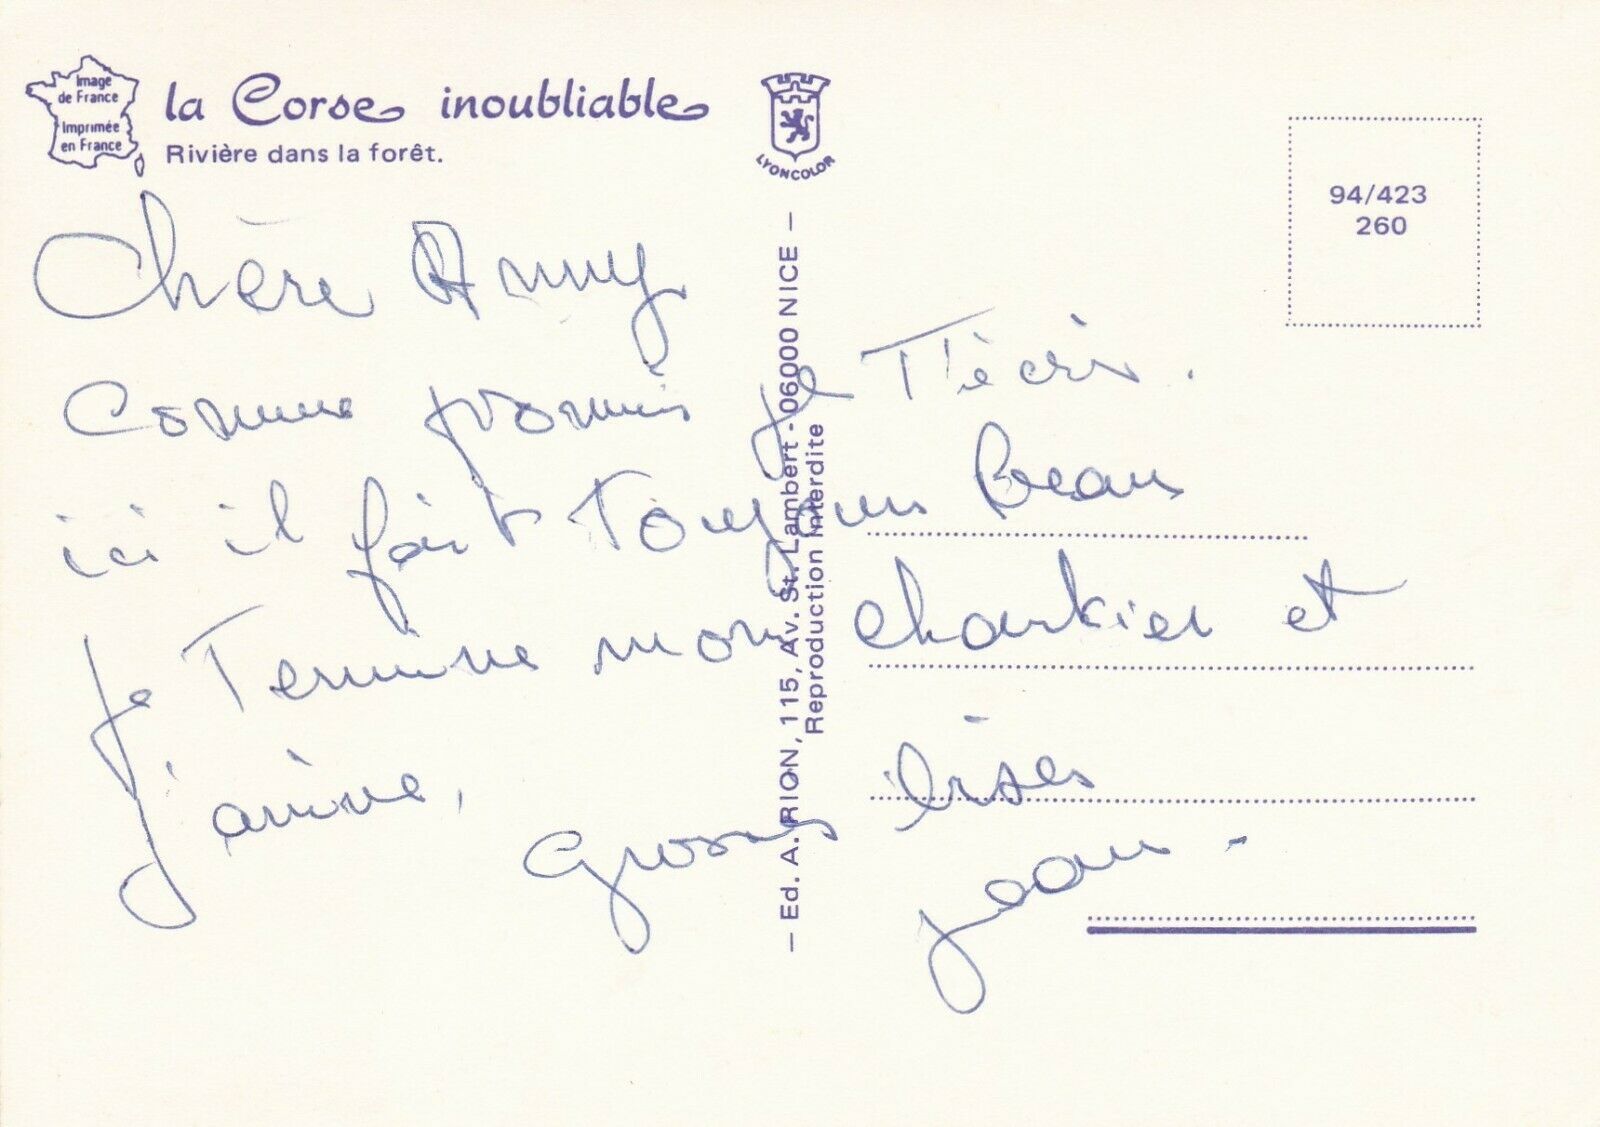 Image
de France
Imprimée
en France
la Corse inoubliable
Rivière dans la forêt.
LYONCOLOR
94/423
260
Chère Anny
Comme promis je T'écris.
ici il fait Toujours beau
je Termine mon chantier et
j'arrive, Grosses bises
jean -
— Ed. A. RION, 115, Av. St. Lambert - 06000 NICE —
Reproduction Interdite